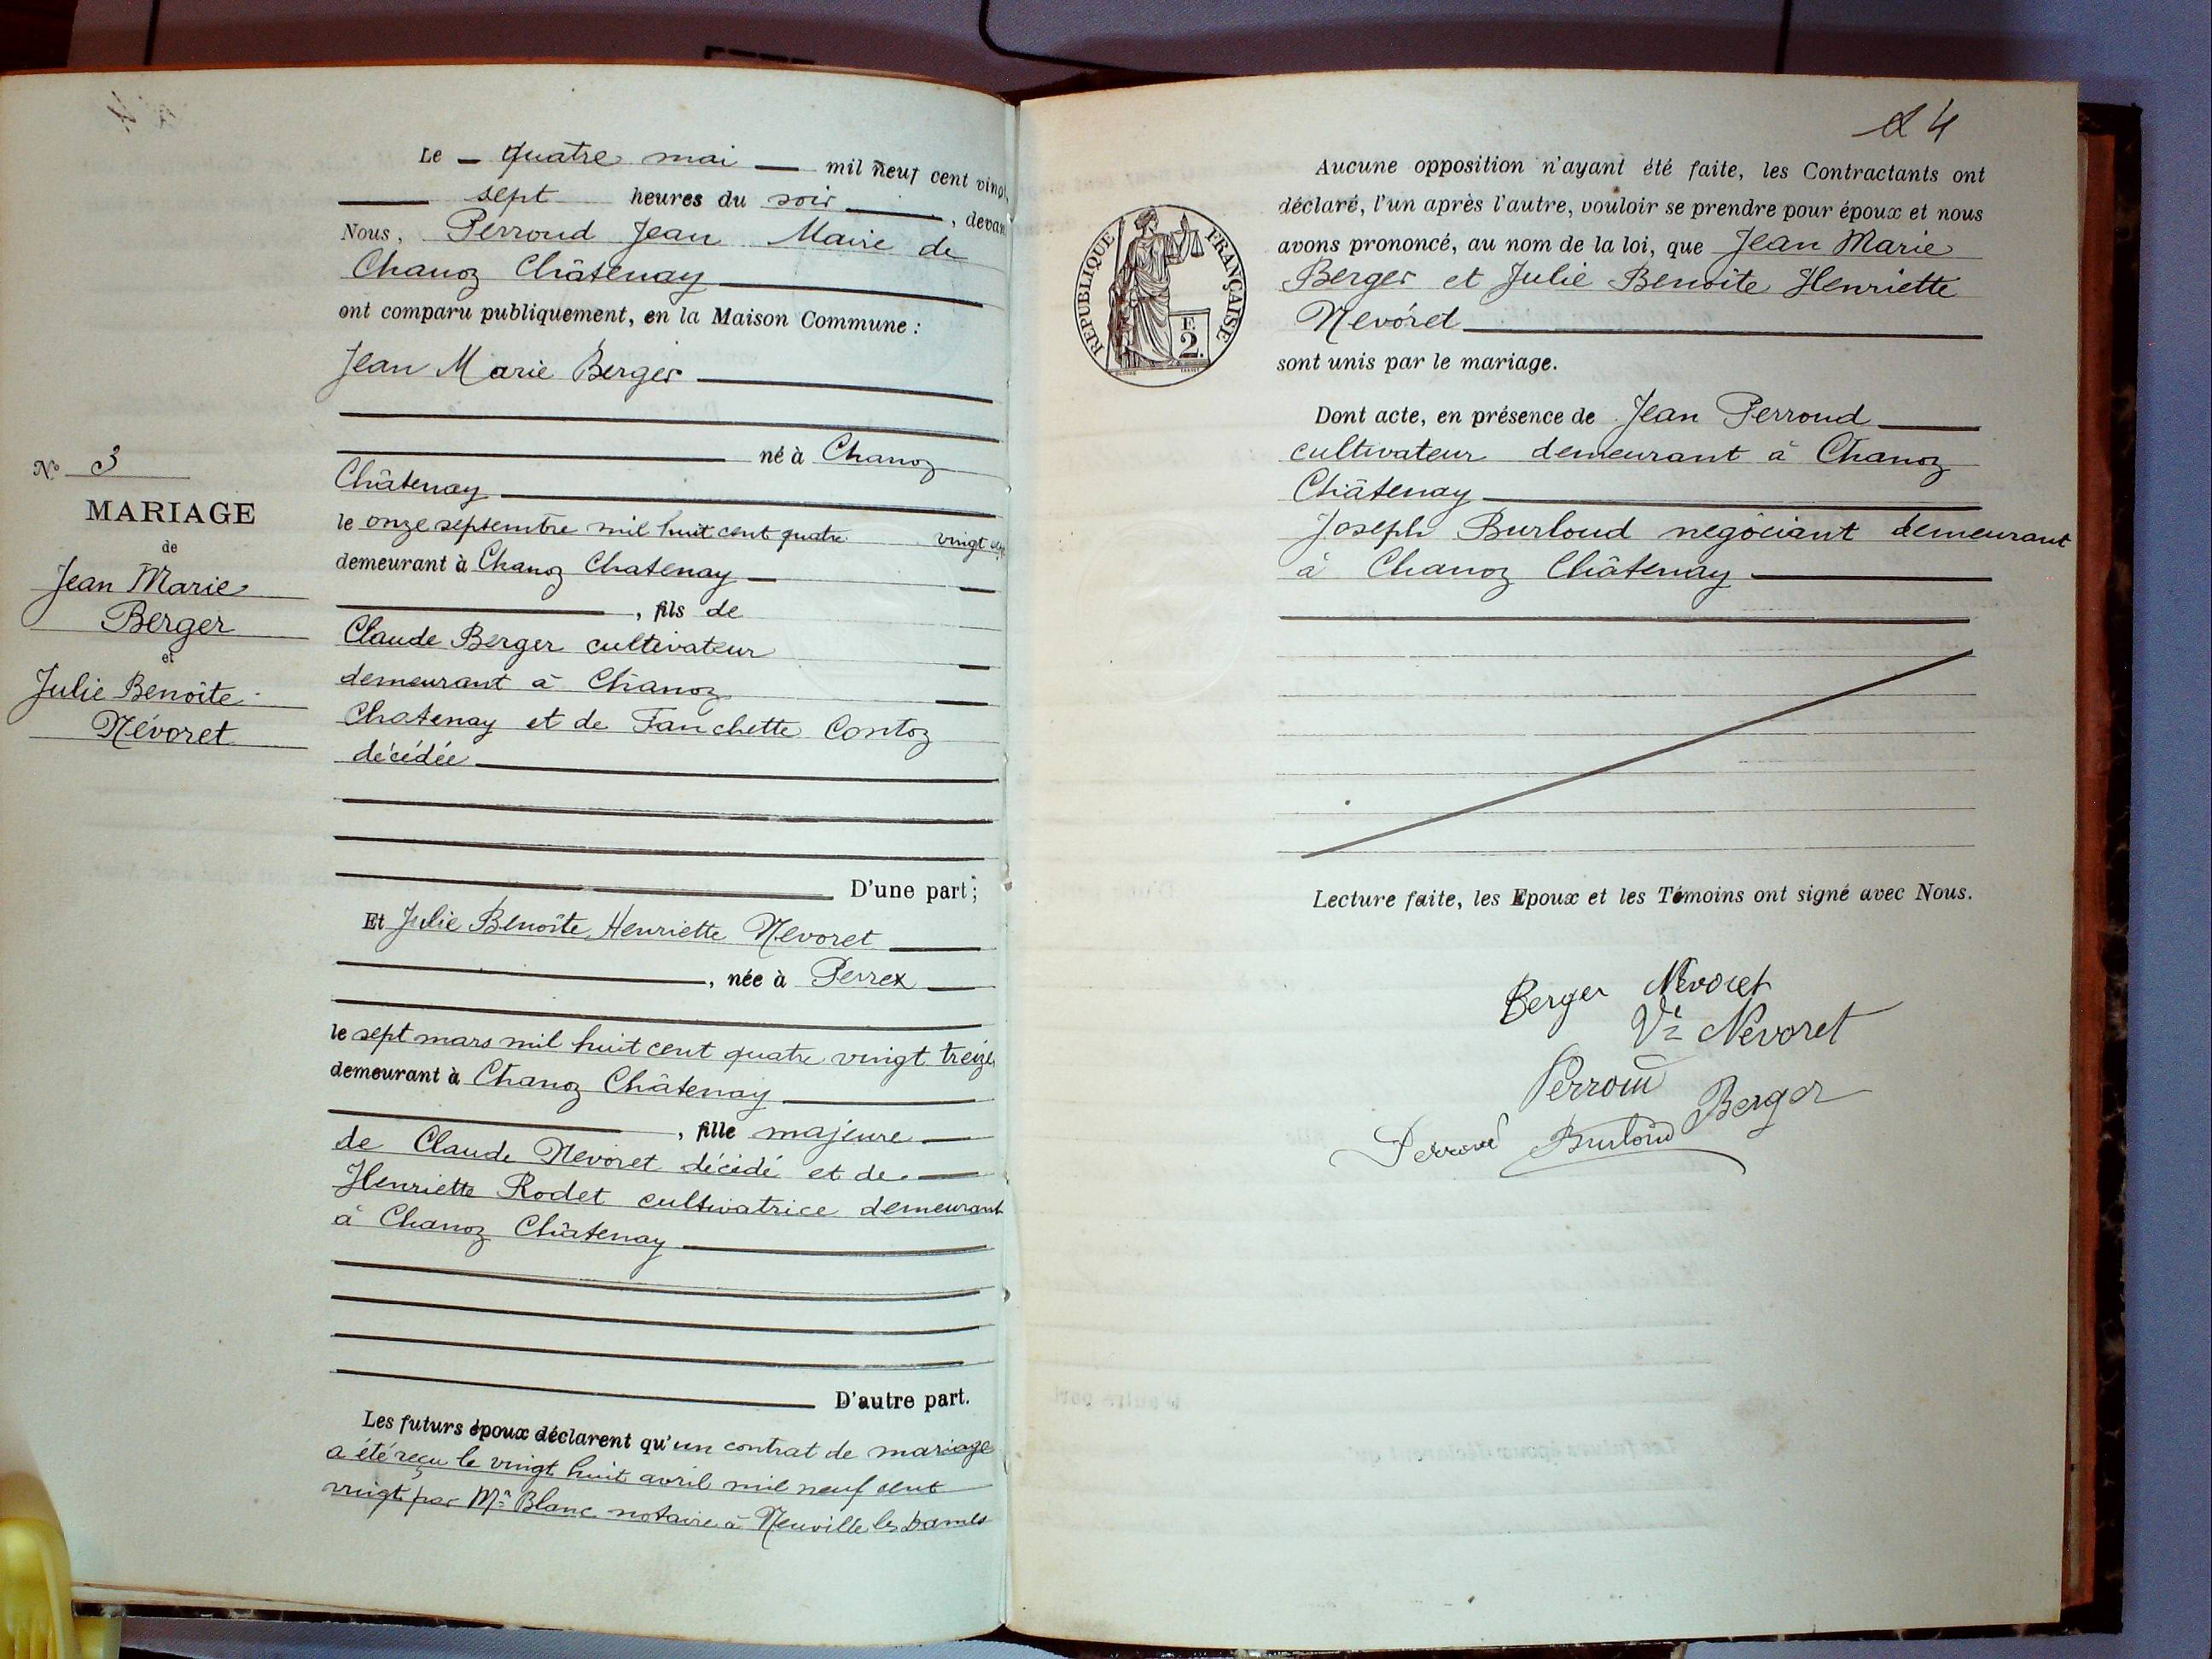 N° 3
MARIAGE
de
Jean Marie
Berger
et
Julie Benoîte
Névoret
Le quatre mai mil neuf cent vingt,
sept heures du soir, devant
Nous, Perroud Jean Maire de
Chanoz Châtenay
ont comparu publiquement, en la Maison Commune :
Jean Marie Berger
né à Chanoz
Châtenay
le onze septembre mil huit cent quatre vingt
demeurant à Chanoz Chatenay
, fils de
Claude Berger cultivateur
demeurant à Chanoz
Chatenay et de Fanchette Contoz
décédée
D'une part ;
Et Julie Benoîte Henriette Nevoret
, née à Perrex
le sept mars mil huit cent quatre vingt treize
demeurant à Chanoz Châtenay
, fille majeure
de Claude Nevoret décédé et de
Henriette Rodet cultivatrice demeurant
à Chanoz Châtenay
D'autre part.
Les futurs époux déclarent qu'un contrat de mariage
a été reçu le vingt huit avril mil neuf cent
vingt par Me Blanc notaire à Neuville les Dames
24
REPUBLIQUE FRANÇAISE
F.
2.
Aucune opposition n'ayant été faite, les Contractants ont
déclaré, l'un après l'autre, vouloir se prendre pour époux et nous
avons prononcé, au nom de la loi, que Jean Marie
Berger et Julie Benoîte Henriette
Nevoret
sont unis par le mariage.
Dont acte, en présence de Jean Perroud
cultivateur demeurant à Chanoz
Châtenay
Joseph Burloud negociant demeurant
à Chanoz Châtenay
Lecture faite, les Epoux et les Témoins ont signé avec Nous.
Berger Nevoret
Ve Nevoret
Perroud
Berger
Perroud Burloud